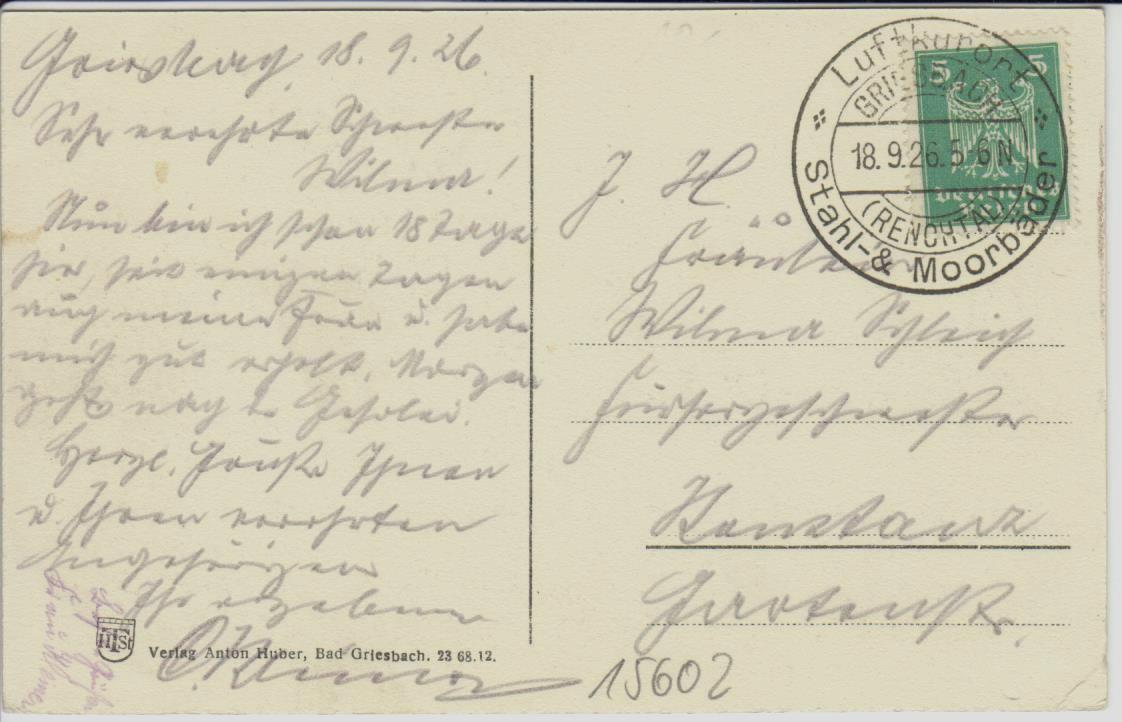 Griesbach, 18. 9. 26.
Sehr verehrte Schwester
Wilma!
Nun bin ich schon 18 Tage
hier, seit einigen Tagen
auch meine Frau u. habe
mich gut erholt. Morgen
geht's nach d.
Herzl. Grüße Ihnen
u. Ihren verehrten
Angehörigen
Ihr ergebener
HTSt
Verlag Anton Huber, Bad Griesbach. 23 68.12.
5 5
Deutsches
Luftkurort
GRIESBACH
18.9.26.5-6N
(RENCHTAL)
Stahl-& Moorbäder
J. H.
Fräulein
Wilma Schleich
Fürsorgeschwester
Konstanz
Gartenstr.
15602